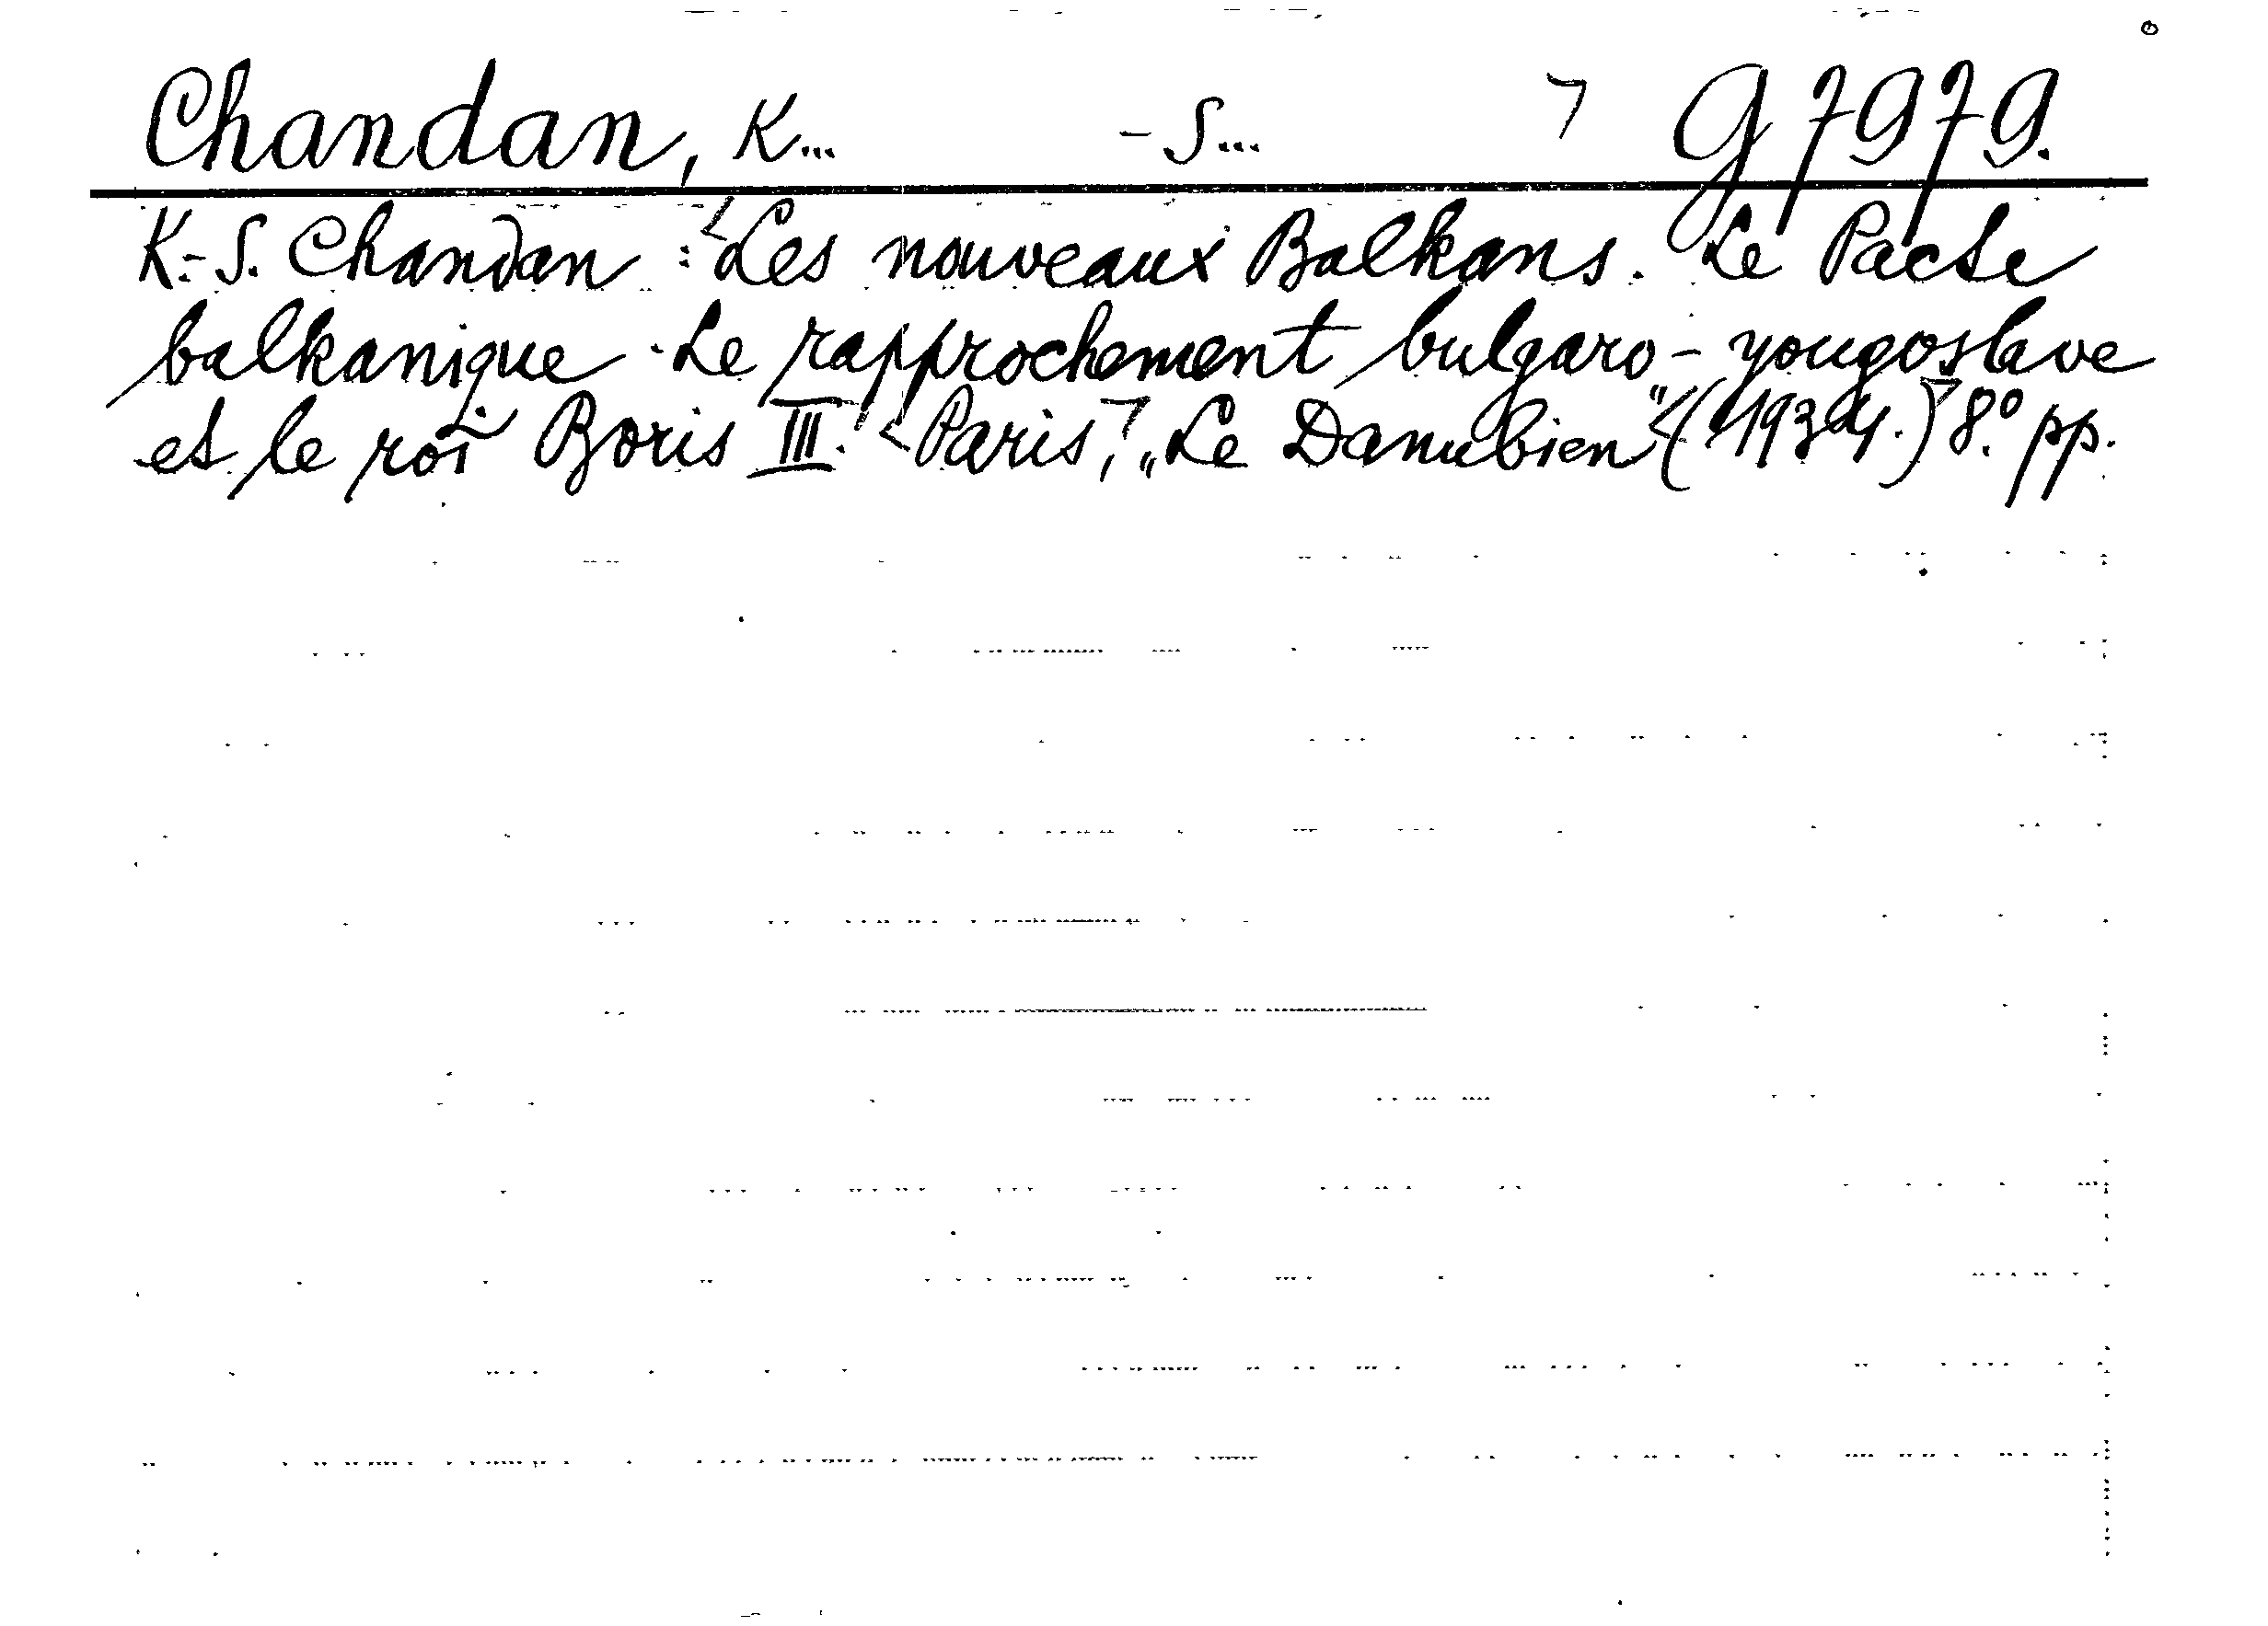 Chandan, K... -S... ㄱ G 7979.
K.-S. Chandan : Les nouveaux Balkans. Le Pacte
balkanique. Le rapprochement bulgaro-yougoslave
et le roi Boris III. Paris, „Le Danubien" (1934.) 8.° pp.